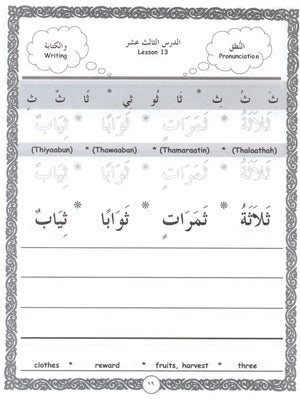 الدرس الثالث عشر
Lesson 13
النُّطق
Pronunciation
والكتابة
Writing
ثَ ثُ ثِ * ثَا ثُو ثِي * ثًا ثٌ ثٍ
ثَلَاثَةُ * ثَمَرَاتٍ * ثَوَابًا * ثِيَابٌ
(Thiyaabun) * (Thawaabon) * (Thamaraatin) * (Thalaathah)
ثَلَاثَةُ * ثَمَرَاتٍ * ثَوَابًا * ثِيَابٌ
ثَلَاثَةُ * ثَمَرَاتٍ * ثَوَابًا * ثِيَابٌ
clothes * reward * fruits, harvest * three
١٦